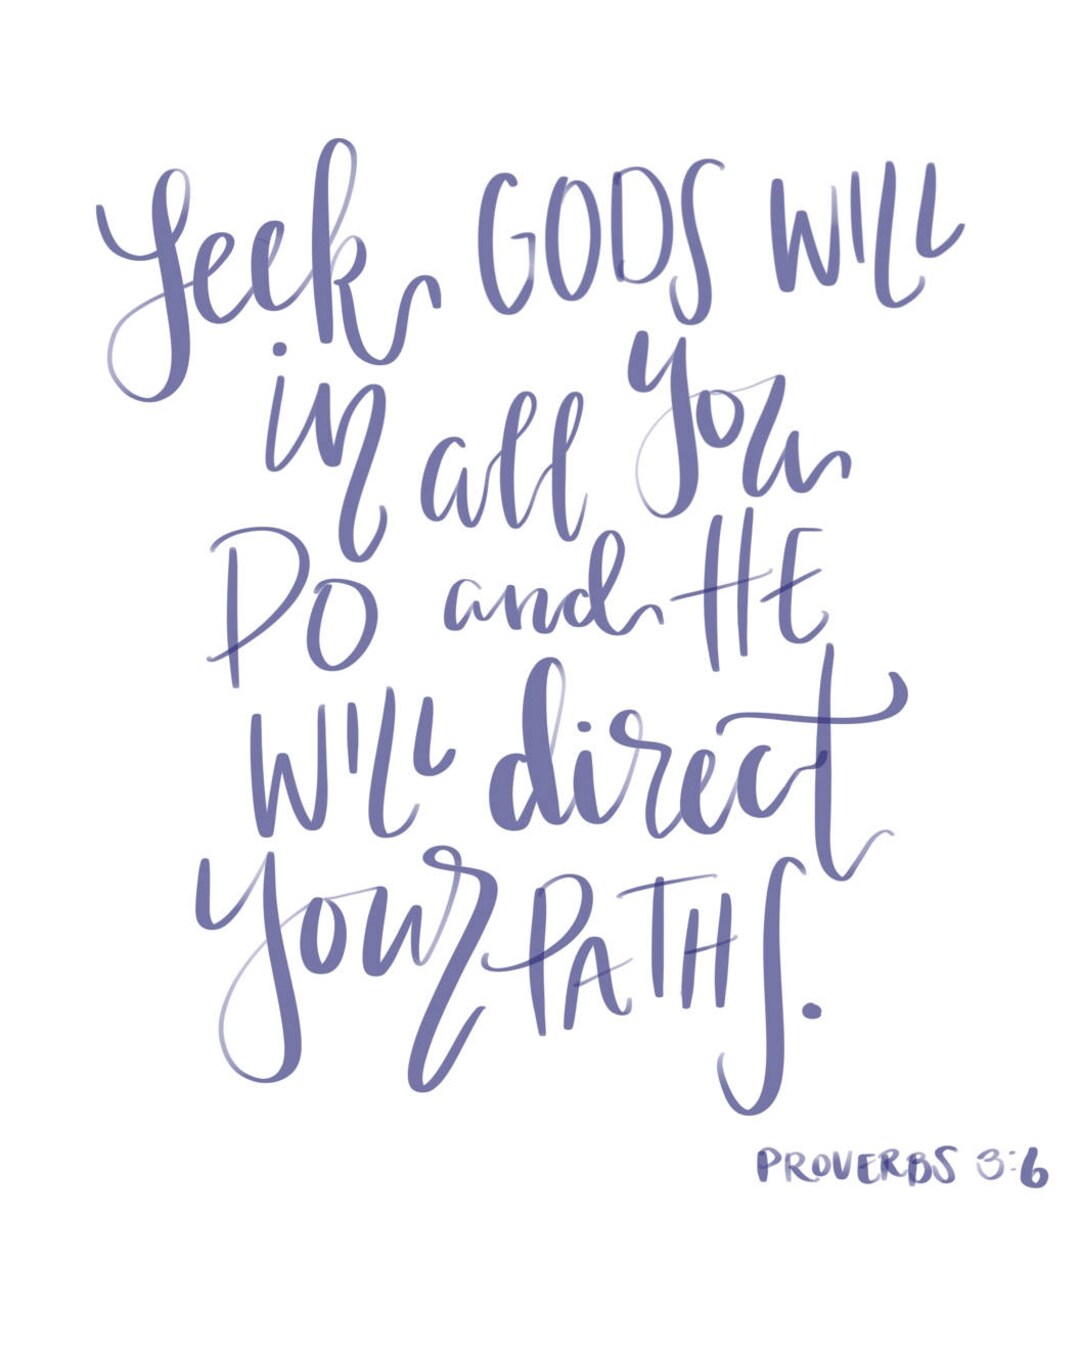 Seek GODS WILL
in all you
DO and HE
WILL direct
your PATHS.
PROVERBS 3:6